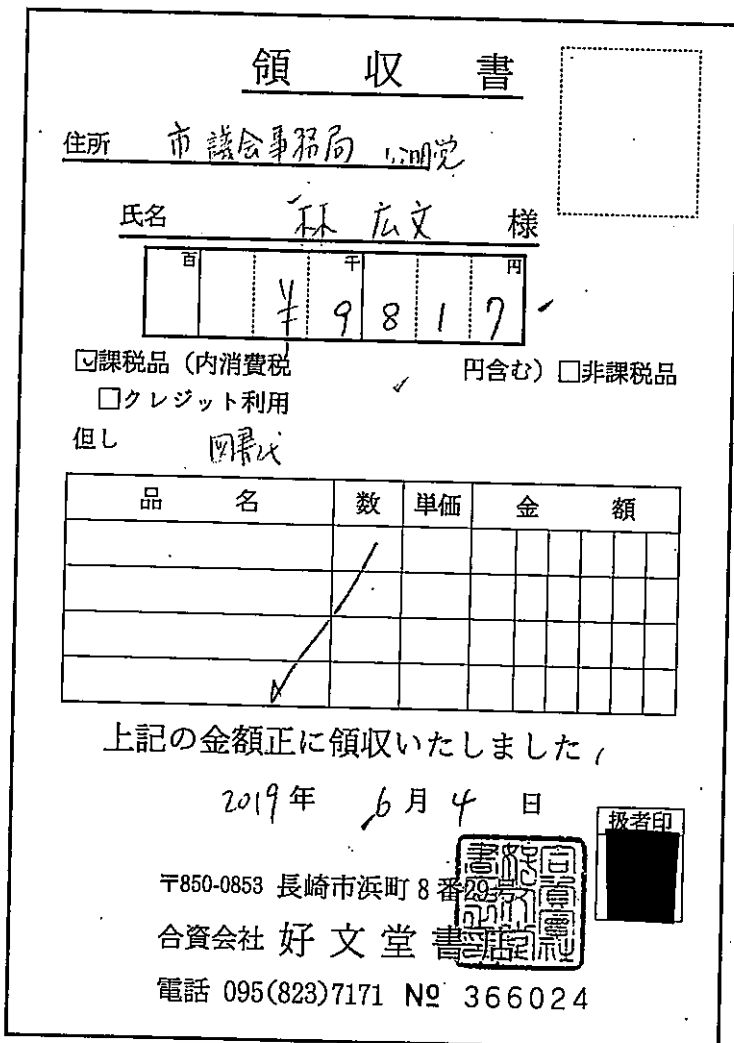 領 収 書
住所 市議会事務局 公明党
氏名 林 広文 様
百 千 円
¥9817
☑課税品（内消費税 円含む）□非課税品
□クレジット利用
但し 図書代
品 名 数 単価 金 額
上記の金額正に領収いたしました
2019年 6月 4日
扱者印
〒850-0853 長崎市浜町8番29号
合資会社 好文堂書店
電話 095(823)7171 № 366024